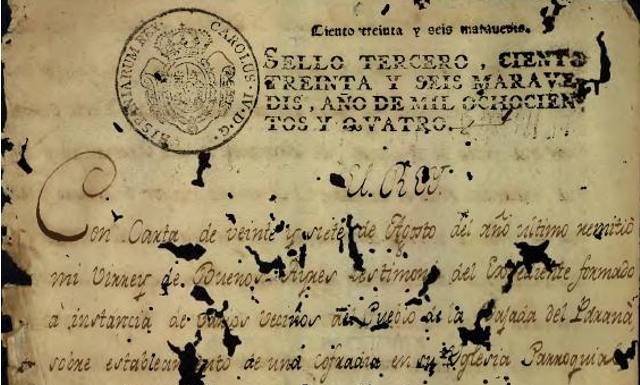 Ciento treinta y seis maravedis.
CAROLUS·IV·D·G· HISPANIARUM REX
SELLO TERCERO, CIENTO
TREINTA Y SEIS MARAVE
DIS, AÑO DE MIL OCHOCIEN
TOS Y QVATRO.
El REY.
Con Carta de veinte y siete de Agosto del año ultimo remitió
mi Virrey de Buenos Ayres testimonio del Expediente formado
á instancia de varios vecinos del Pueblo de la Bajada del Paraná
sobre establecimiento de una cofradia en su Yglesia Parroquial